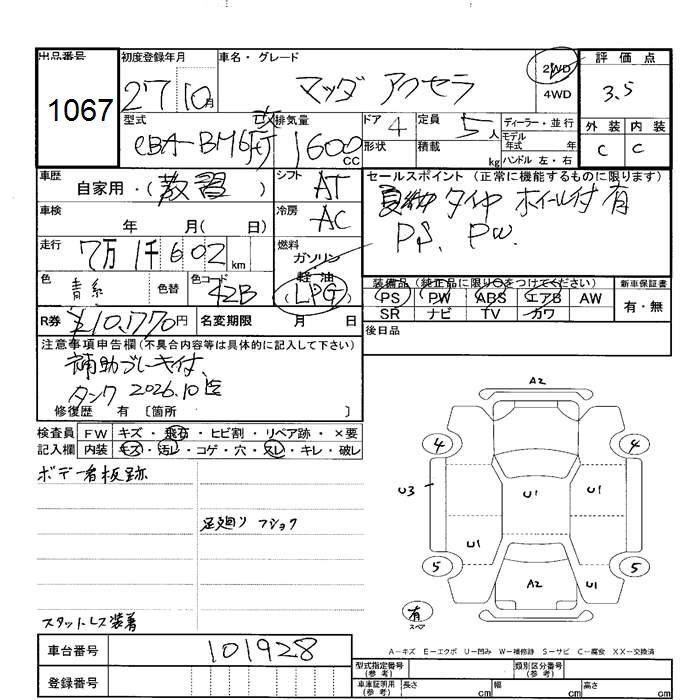 出品番号 初度登録年月 車名・グレード 評価点
1067 27 10月 マツダ アクセラ 2WD 4WD 3.5
型式 改 排気量 ドア 定員 ディーラー・並行 外装 内装
EBA-BM6FJ 1600 CC 4 5人 モデル年式 年 C C
形状 積載 kg ハンドル 左・右
車歴 シフト セールスポイント (正常に機能するものに限ります)
自家用・(教習) AT 夏タイヤ ホイール付 有
車検 冷房
年 月( 日) AC PS. PW.
走行 燃料
7万1千602km ガソリン
軽油
色 色替 色コード (LPG) 装備品(純正品に限り○をつけてください) 新車保証書
青系 42B PS PW ABS エアB AW 有・無
R券 ¥10,770円 名変期限 月 日 SR ナビ TV カワ
注意事項申告欄(不具合内容等は具体的に記入して下さい) 後日品
補助ブレーキ付、
タンク 2026.10迄
修復歴 有 〔箇所 〕
検査員 FW キズ・飛石・ヒビ割・リペア跡・×要
記入欄 内装 キズ・汚レ・コゲ・穴・スレ・キレ・破レ
ボデー看板跡
足廻り フショク
スタットレス装着
A2
4 4
U3 U1 U1
U1
5 5
A2 U1
有
スペア
A-キズ E-エクボ U-凹み W-補修跡 S-サビ C-腐食 XX-交換済
車台番号 101928
登録番号
型式指定番号(参考) 類別区分番号(参考)
車庫証明用(参考) 長さ cm 幅 cm 高さ cm